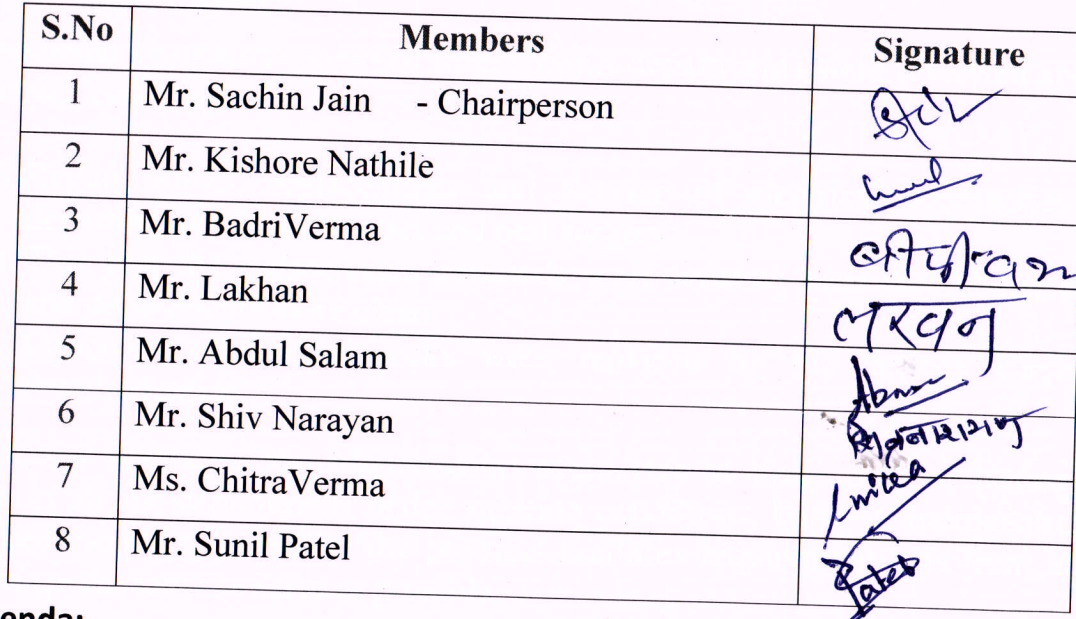 S.No Members Signature
1 Mr. Sachin Jain - Chairperson
2 Mr. Kishore Nathile
3 Mr. BadriVerma
4 Mr. Lakhan लखन
5 Mr. Abdul Salam
6 Mr. Shiv Narayan शिवनारायण
7 Ms. ChitraVerma
8 Mr. Sunil Patel Patel